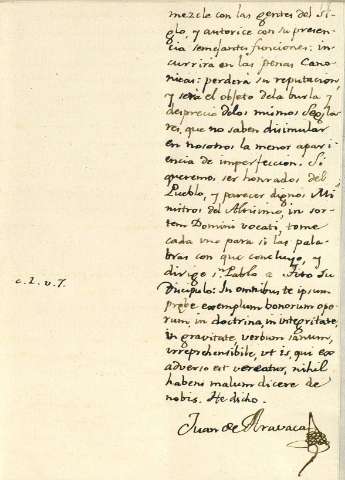 mezcle con las gentes del Si-
glo, y autorice con su presen-
cia semejantes funciones: in-
currirá en las penas Cano-
nicas: perderá su reputacion,
y será el objeto dela burla y
desprecio delos mismos Segla-
res, que no saben disimular
en nosotros la menor apari-
encia de imperfeccion. Si
queremos ser honrados del
Pueblo, y parecer dignos Mi-
nistros del Altisimo, in sor-
tem Domini vocati, tome
cada uno para si las pala-
bras con que concluyo, y
dirige Sn. Pablo a Tito Su
c. 2. v. 7.
Discipulo: In omnibus te ipsum
prębe exemplum bonorum ope-
rum, in doctrina, in integritate,
in gravitate verbum sanum,
irreprehensibile, ut is, qui ex
adverso est vereatur, nihil
habens malum dicere de
nobis. He dicho.
Juan de Aravaca